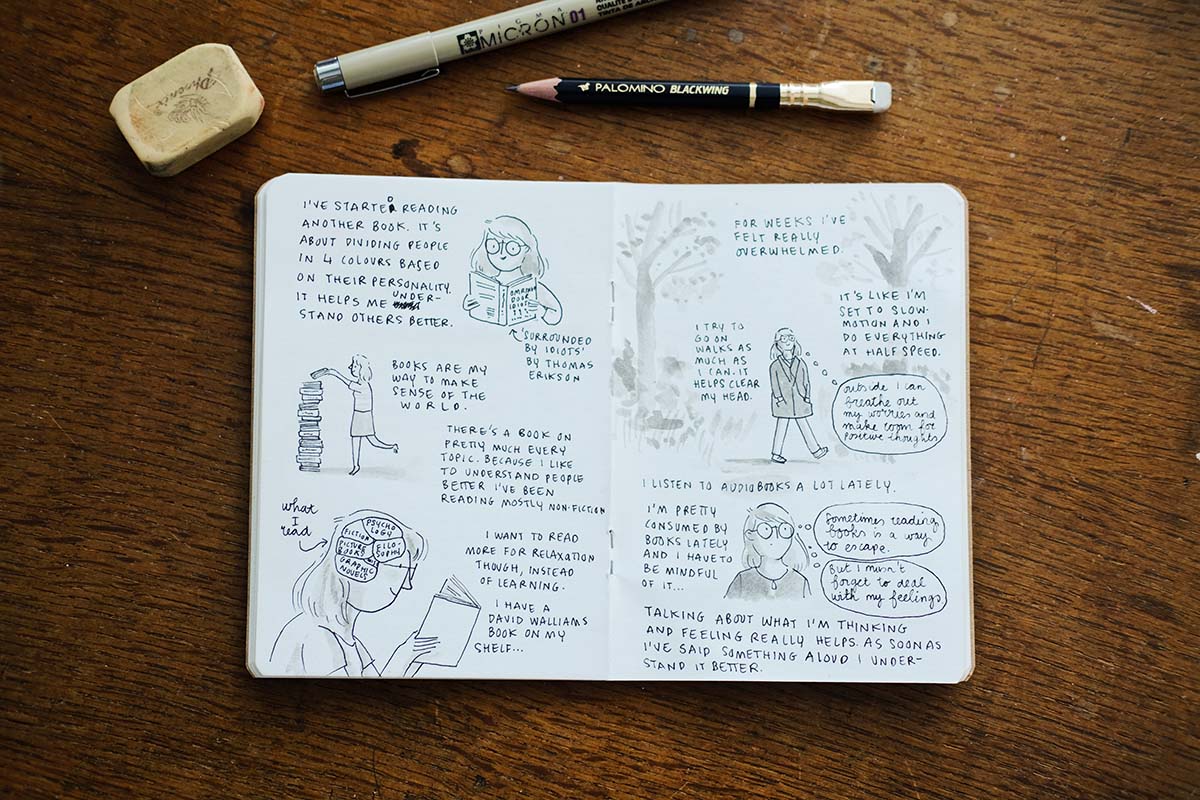 PIGMA
MICRON 01
PALOMINO BLACKWING
I'VE STARTED READING
ANOTHER BOOK. IT'S
ABOUT DIVIDING PEOPLE
IN 4 COLOURS BASED
ON THEIR PERSONALITY.
IT HELPS ME UNDER-
STAND OTHERS BETTER.
OMRINGAD
IDIOTER
'SURROUNDED
BY IDIOTS'
BY THOMAS
ERIKSON
BOOKS ARE MY
WAY TO MAKE
SENSE OF THE
WORLD.
THERE'S A BOOK ON
PRETTY MUCH EVERY
TOPIC. BECAUSE I LIKE
TO UNDERSTAND PEOPLE
BETTER I'VE BEEN
READING MOSTLY NON-FICTION
what
I
read
PSYCHO
LOGY
FICTION
PICTURE
BOOKS
FILO-
SOPHY
GRAPHIC
NOVELS
I WANT TO READ
MORE FOR RELAXATION
THOUGH, INSTEAD
OF LEARNING.
I HAVE A
DAVID WALLIAMS
BOOK ON MY
SHELF...
FOR WEEKS I'VE
FELT REALLY
OVERWHELMED.
IT'S LIKE I'M
SET TO SLOW-
MOTION AND I
DO EVERYTHING
AT HALF SPEED.
I TRY TO
GO ON
WALKS AS
MUCH AS
I CAN. IT
HELPS CLEAR
MY HEAD.
outside I can
breathe out
my worries and
make room for
positive thoughts.
I LISTEN TO AUDIOBOOKS A LOT LATELY.
I'M PRETTY
CONSUMED BY
BOOKS LATELY
AND I HAVE TO
BE MINDFUL
OF IT...
Sometimes reading
books is a way
to escape.
But I musn't
forget to deal
with my feelings.
TALKING ABOUT WHAT I'M THINKING
AND FEELING REALLY HELPS. AS SOON AS
I'VE SAID SOMETHING ALOUD I UNDER-
STAND IT BETTER.